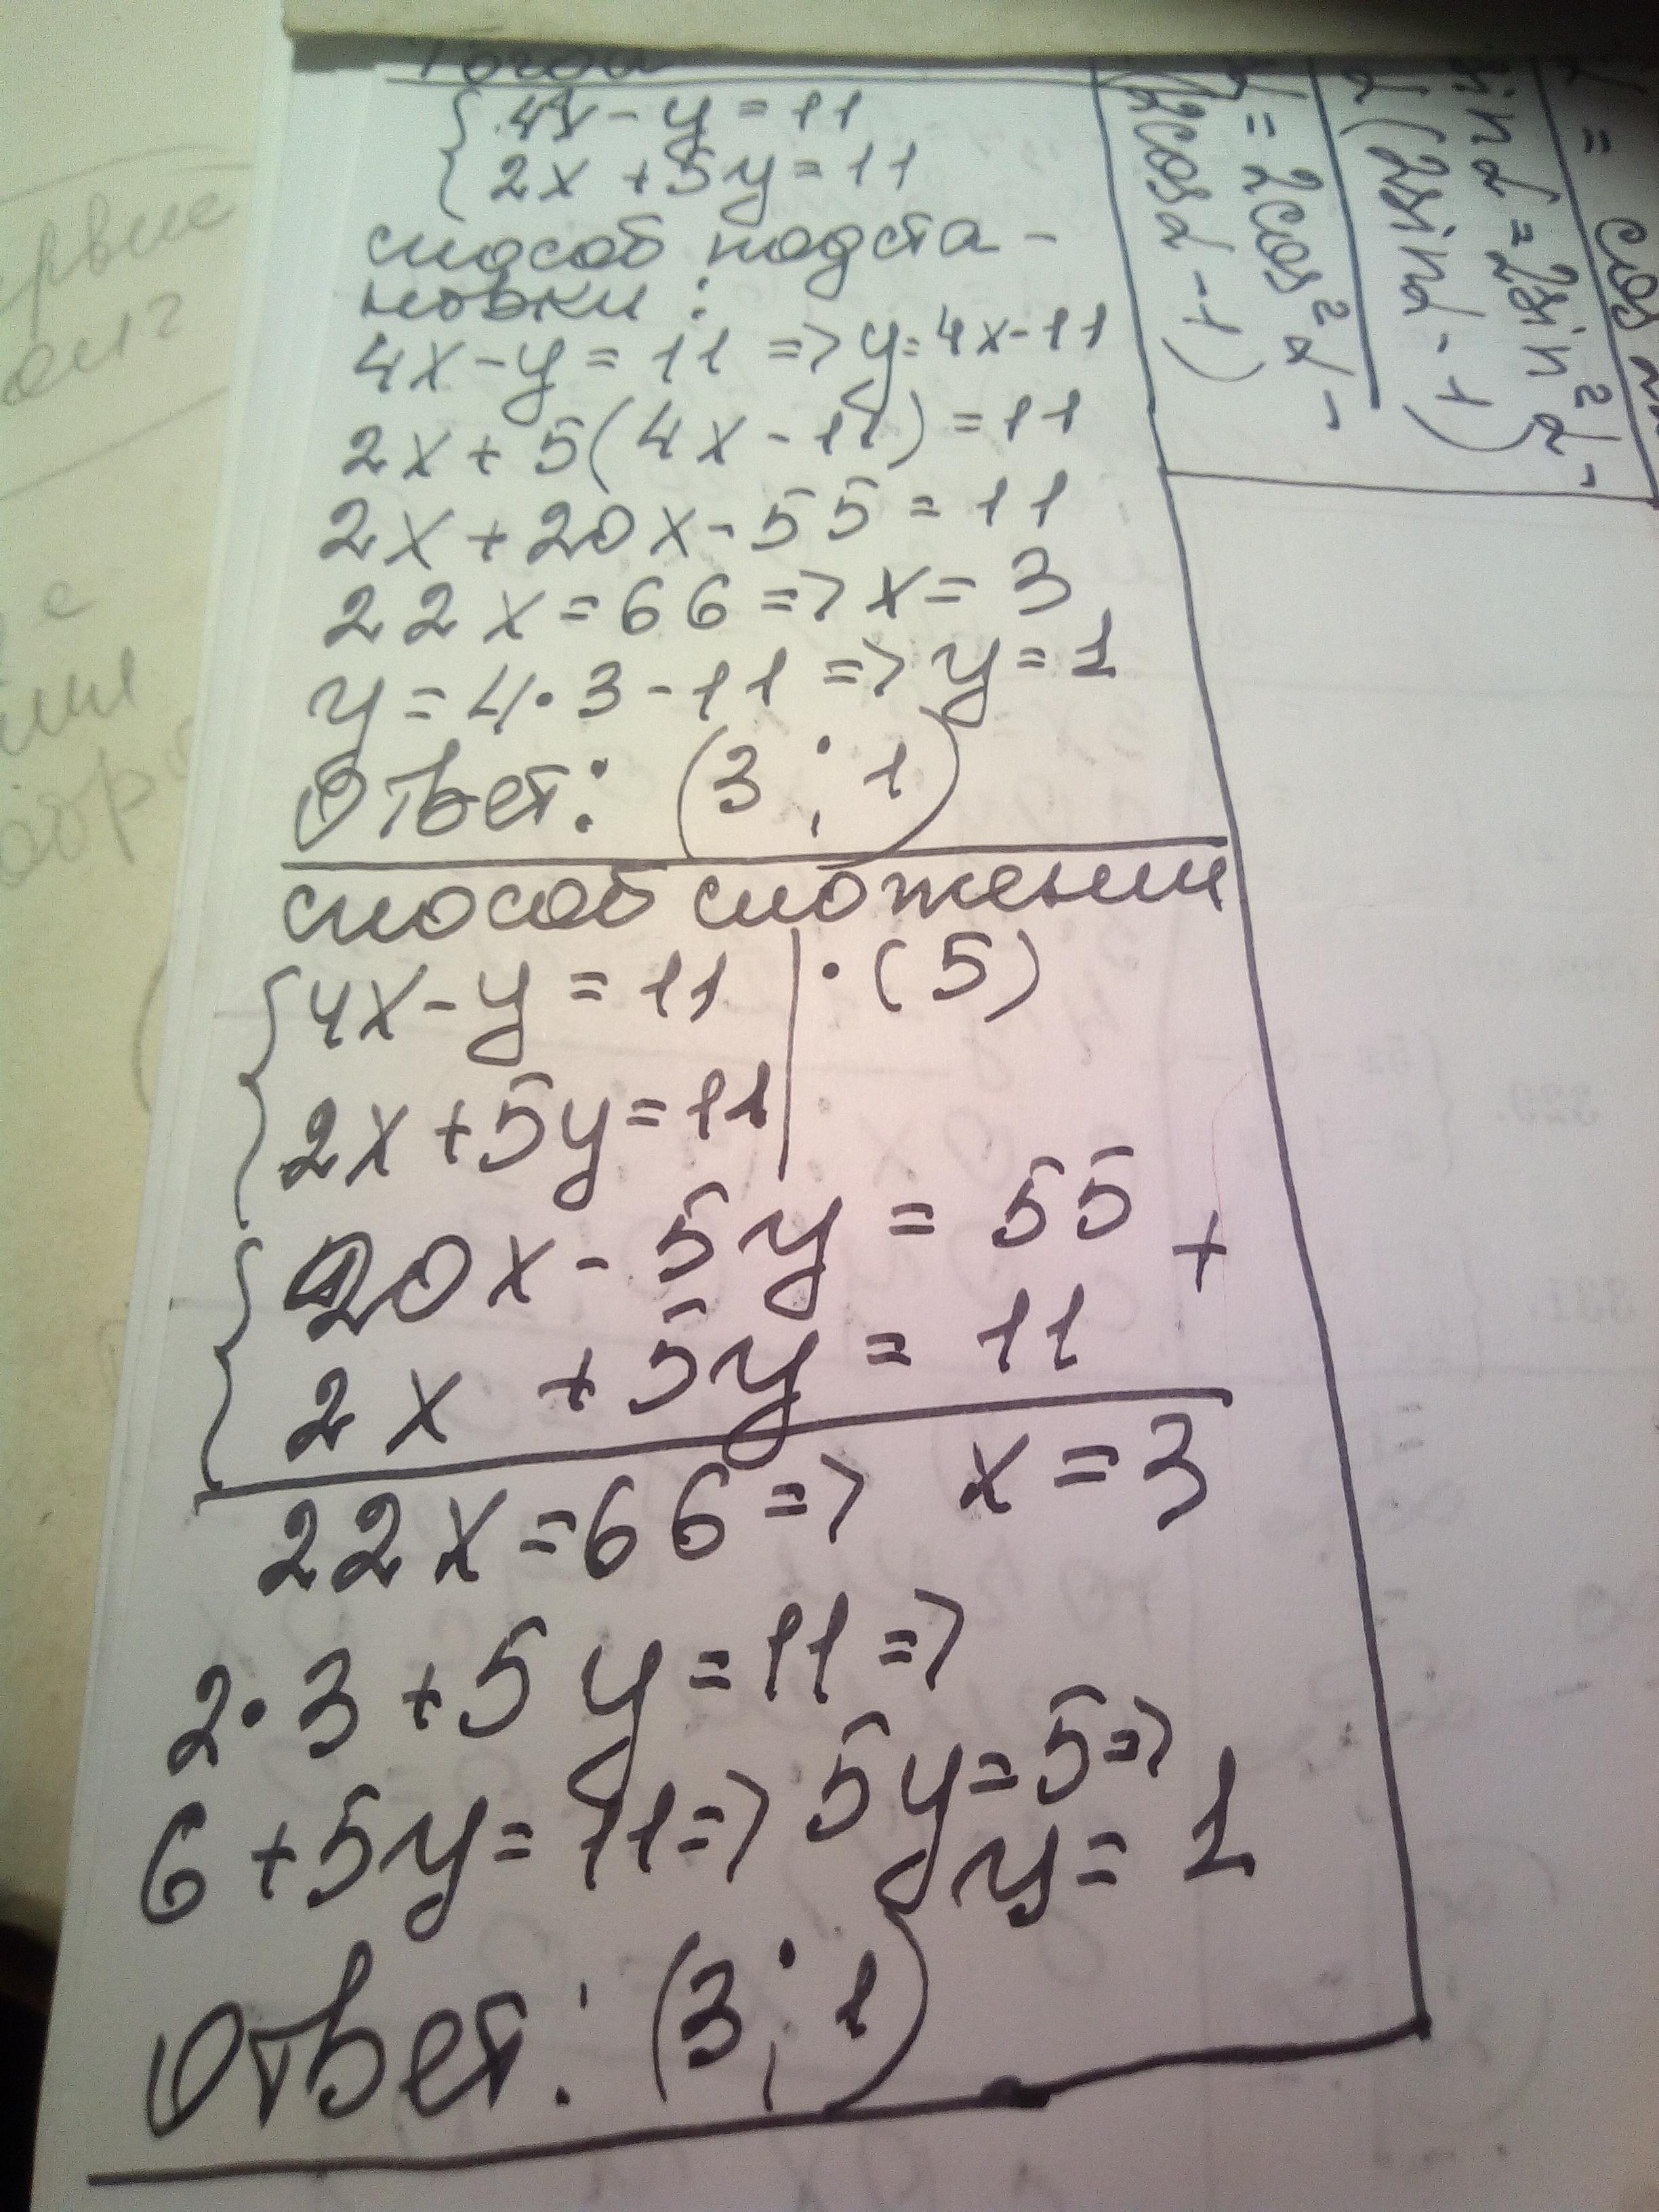 { 4x - y = 11
2x + 5y = 11
способ подста -
новки :
4x - y = 11 => y = 4x - 11
2x + 5(4x - 11) = 11
2x + 20x - 55 = 11
22x = 66 => x = 3
y = 4 • 3 - 11 => y = 1
Ответ: (3 ; 1)
способ сложения
{ 4x - y = 11 | • (5)
2x + 5y = 11
{ 20x - 5y = 55 +
2x + 5y = 11
22x = 66 => x = 3
2 • 3 + 5y = 11 =>
6 + 5y = 11 => 5y = 5 =>
y = 1
Ответ: (3 ; 1)
= 2cos²α -
(2cosα - 1)
sinα = 2sin²α -
(2sinα - 1)
= cos
329.
331.